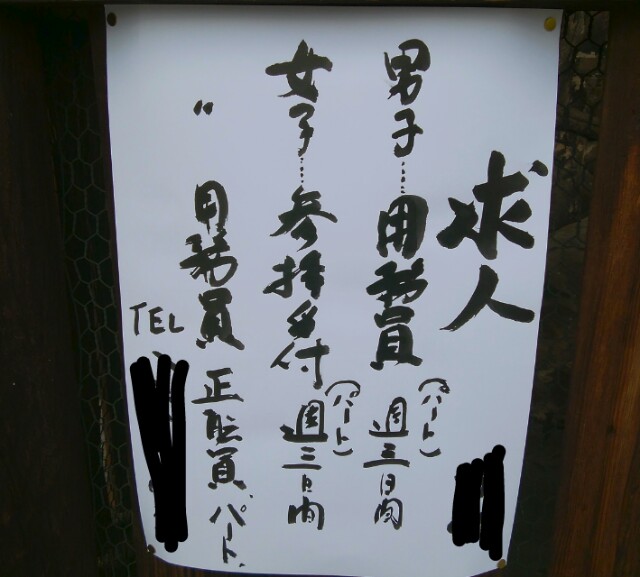 求人
男子……用務員(パート)週三日間
女子……参拝受付(パート)週三日内
〃 用務員 正職員、パート、
TEL